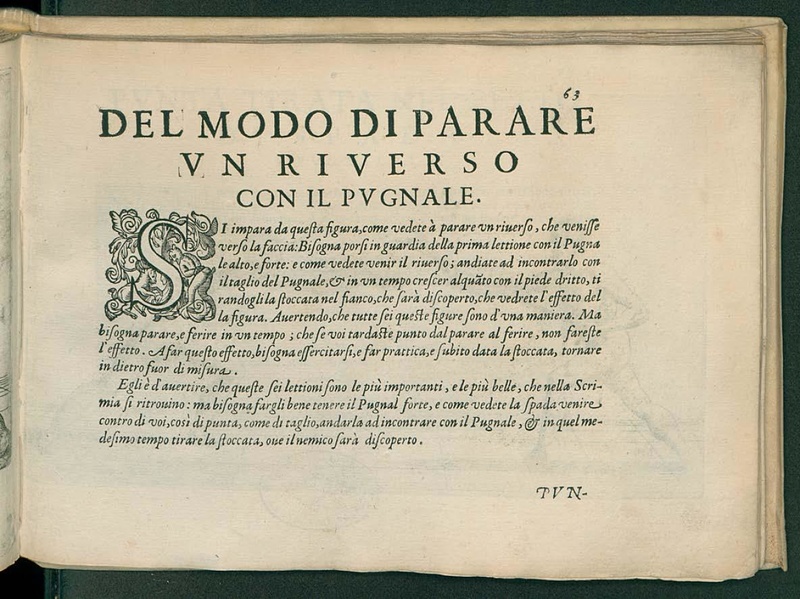 63
DEL MODO DI PARARE
VN RIVERSO
CON IL PVGNALE.
SI impara da questa figura, come vedete à parare vn riuerso, che venisse
verso la faccia: Bisogna porsi in guardia della prima lettione con il Pugna
le alto, e forte: e come vedete venir il riuerso; andiate ad incontrarlo con
il taglio del Pugnale, & in vn tempo crescer alquãto con il piede dritto, ti
randogli la stoccata nel fianco, che sarà discoperto, che vedrete l'effetto del
la figura. Auertendo, che tutte sei queste figure sono d'vna maniera. Ma
bisogna parare, e ferire in vn tempo; che se voi tardaste punto dal parare al ferire, non fareste
l'effetto. A far questo effetto, bisogna essercitarsi, e far prattica, e subito data la stoccata, tornare
in dietro fuor di misura.
Egli è d'auertire, che queste sei lettioni sono le più importanti, e le più belle, che nella Scri-
mia si ritrouino: ma bisogna fargli bene tenere il Pugnal forte, e come vedete la spada venire
contro di voi, così di punta, come di taglio, andarla ad incontrare con il Pugnale, & in quel me-
desimo tempo tirare la stoccata, oue il nemico sarà discoperto.
PVN-